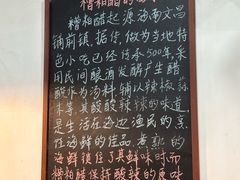 糟粕醋的
糟粕醋起源海南文昌
铺前镇，据传，做为当地特
色小吃已经传承500年，采
用民间酿酒发酵产生醋
水为汤料辅以辣椒、蒜
末等，其酸酸辣辣的味道，
是生活在海边渔民的烹
煮海鲜的佳品。煮熟的
海鲜锁住了其鲜味，时而
糟粕醋保持酸辣的原味